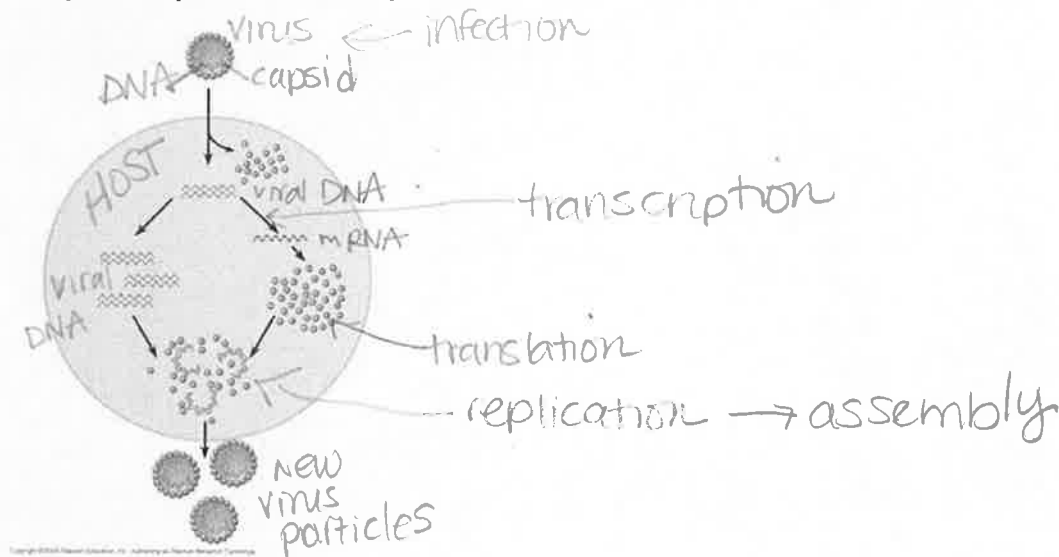 virus ← infection
DNA capsid
HOST
viral DNA
transcription
mRNA
viral
DNA
translation
replication → assembly
New
virus
particles